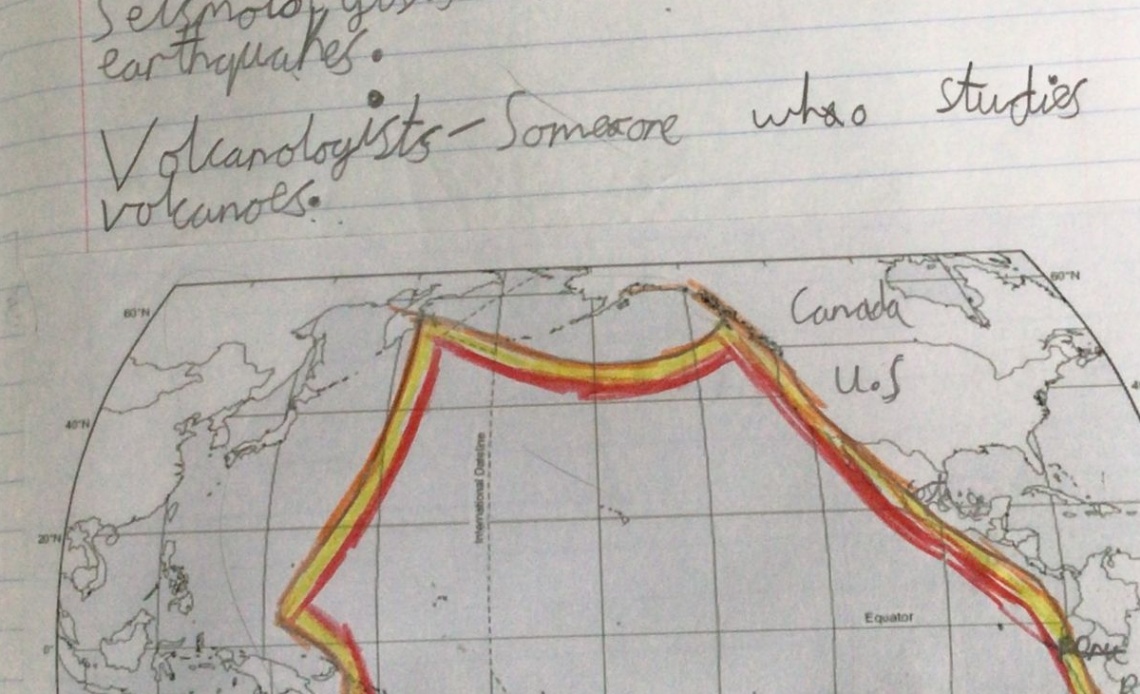 Seismologists
earthquakes.
Volcanologists - Someone who studies
volcanoes.
60°N
60°N
Canada
U.S
40°N
International Dateline
20°N
Equator
0°